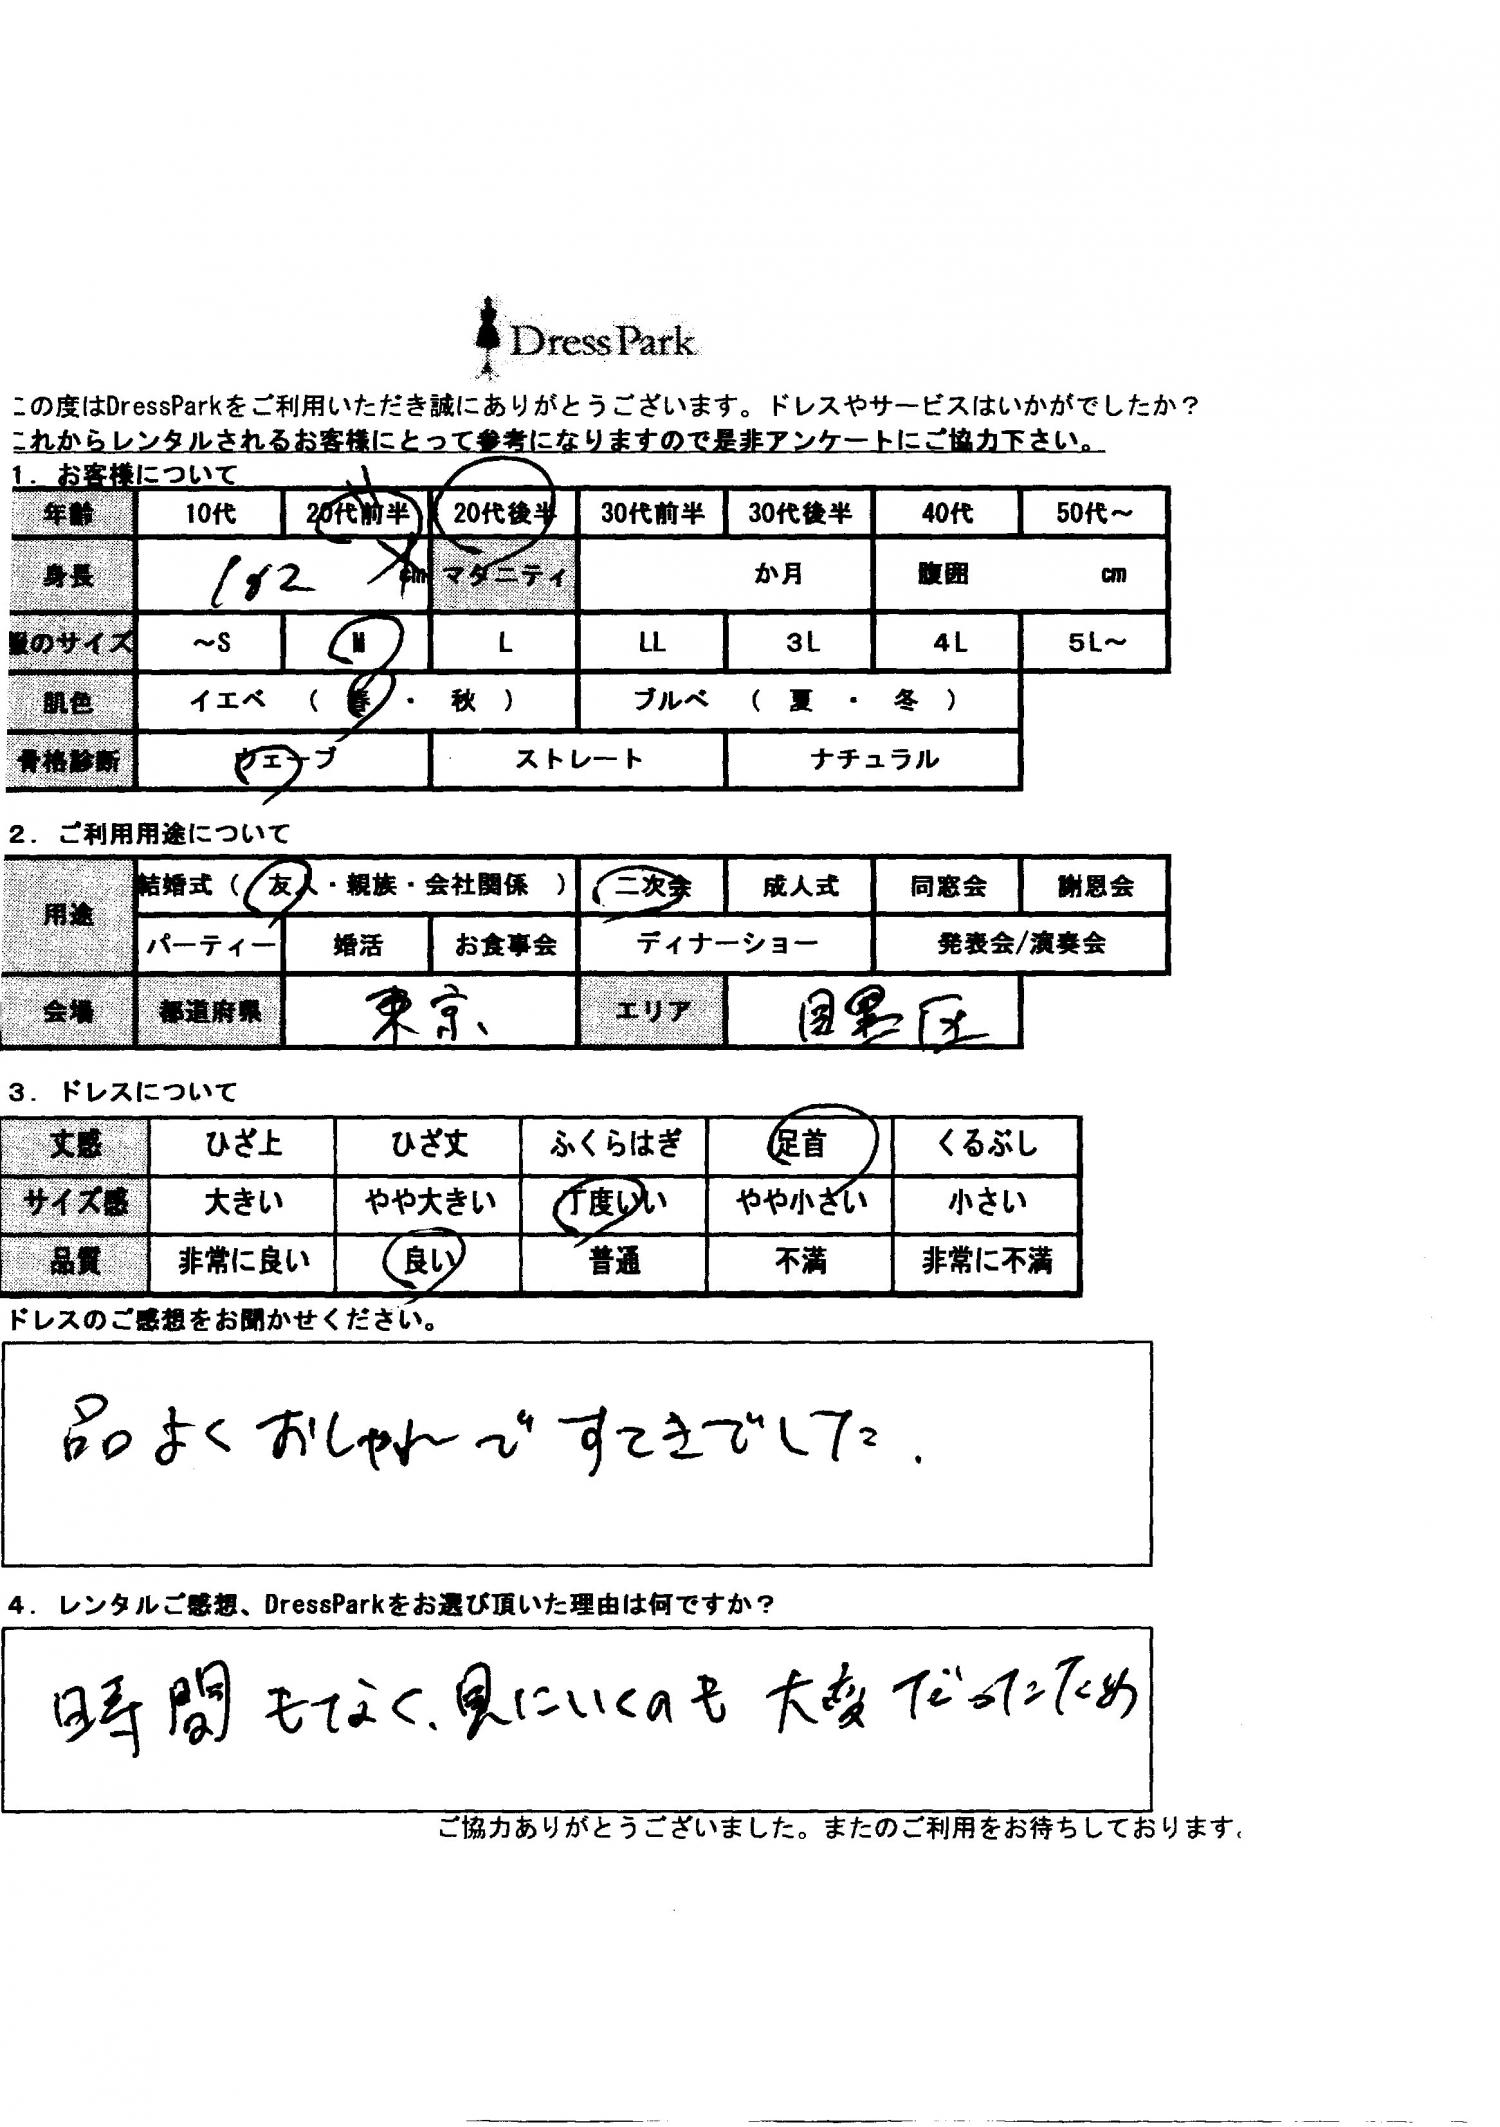 DressPark
この度はDressParkをご利用いただき誠にありがとうございます。ドレスやサービスはいかがでしたか？
これからレンタルされるお客様にとって参考になりますので是非アンケートにご協力下さい。
1. お客様について
年齢 10代 20代前半 20代後半 30代前半 30代後半 40代 50代～
身長 cm マタニティ か月 腹囲 cm
服のサイズ ～S M L LL 3L 4L 5L～
肌色 イエベ （ 春 ・ 秋 ） ブルベ （ 夏 ・ 冬 ）
骨格診断 ウェーブ ストレート ナチュラル
2. ご利用用途について
用途 結婚式（ 友人・親族・会社関係 ） 二次会 成人式 同窓会 謝恩会
パーティー 婚活 お食事会 ディナーショー 発表会/演奏会
会場 都道府県 東京 エリア 目黒区
3. ドレスについて
丈感 ひざ上 ひざ丈 ふくらはぎ 足首 くるぶし
サイズ感 大きい やや大きい 丁度いい やや小さい 小さい
品質 非常に良い 良い 普通 不満 非常に不満
ドレスのご感想をお聞かせください。
品よくおしゃれですてきでした.
4. レンタルご感想、DressParkをお選び頂いた理由は何ですか？
時間もなく、見にいくのも大変だったため
ご協力ありがとうございました。またのご利用をお待ちしております。